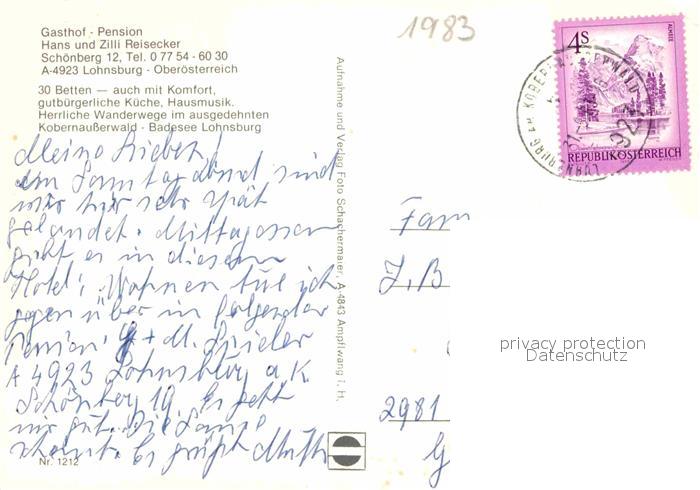 1983
Gasthof - Pension
Hans und Zilli Reisecker
Schönberg 12, Tel. 0 77 54 - 60 30
A-4923 Lohnsburg - Oberösterreich
30 Betten — auch mit Komfort,
gutbürgerliche Küche, Hausmusik.
Herrliche Wanderwege im ausgedehnten
Kobernaußerwald - Badesee Lohnsburg
Meine Lieben!
am Samstag abend sind
wir hier sehr spät
gelandet. Mittagessen
gibt es in diesem
Hotel, Wohnen tue ich
gegenüber in folgender
Pension: G + M.
A 4923 Lohnsburg a. K.
Schönberg 19. Es geht
mir gut. Die Sonne
scheint. Es grüßt Mutti
Nr. 1212
Aufnahme und Verlag Foto Schachermaier, A-4843 Ampflwang i. H.
4S
ALMSEE
REPUBLIK ÖSTERREICH
LOHNSBURG AM KOBERNAUSSERWALD
4923
Fam
J. B
2981
G
privacy protection
Datenschutz